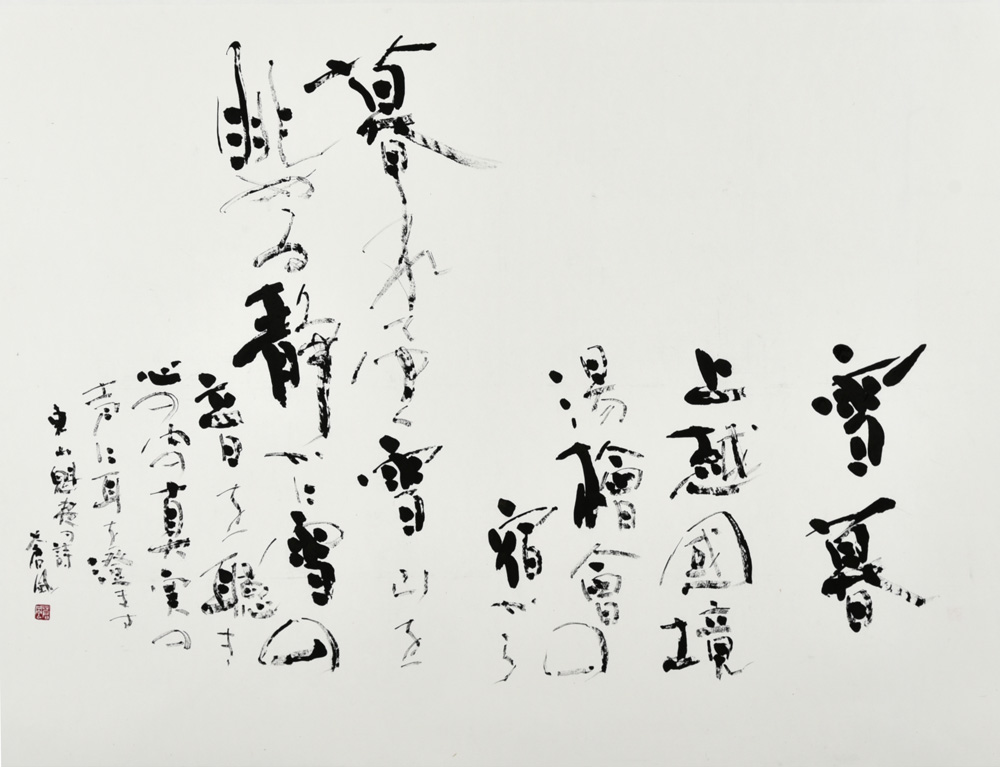 雪暮
上越國境
湯檜會の
宿から
暮れてゆく雪山を
眺める静かに雪の
音を聴き
心の内の真実の
声に耳を澄ます
東山魁夷の詩
蒼風